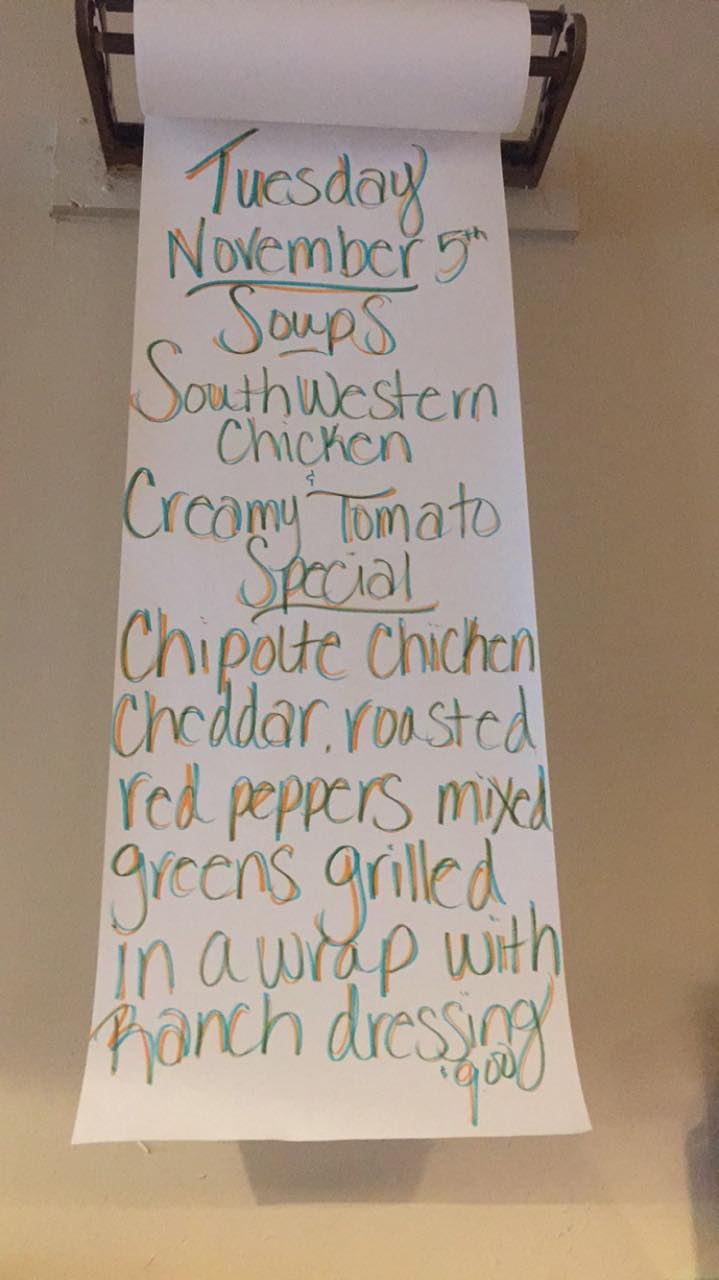 Tuesday
November 5th
Soups
SouthWestern
Chicken
&
Creamy Tomato
Special
Chipolte Chicken
Cheddar, roasted
red peppers mixed
greens grilled
in a wrap with
Ranch dressing